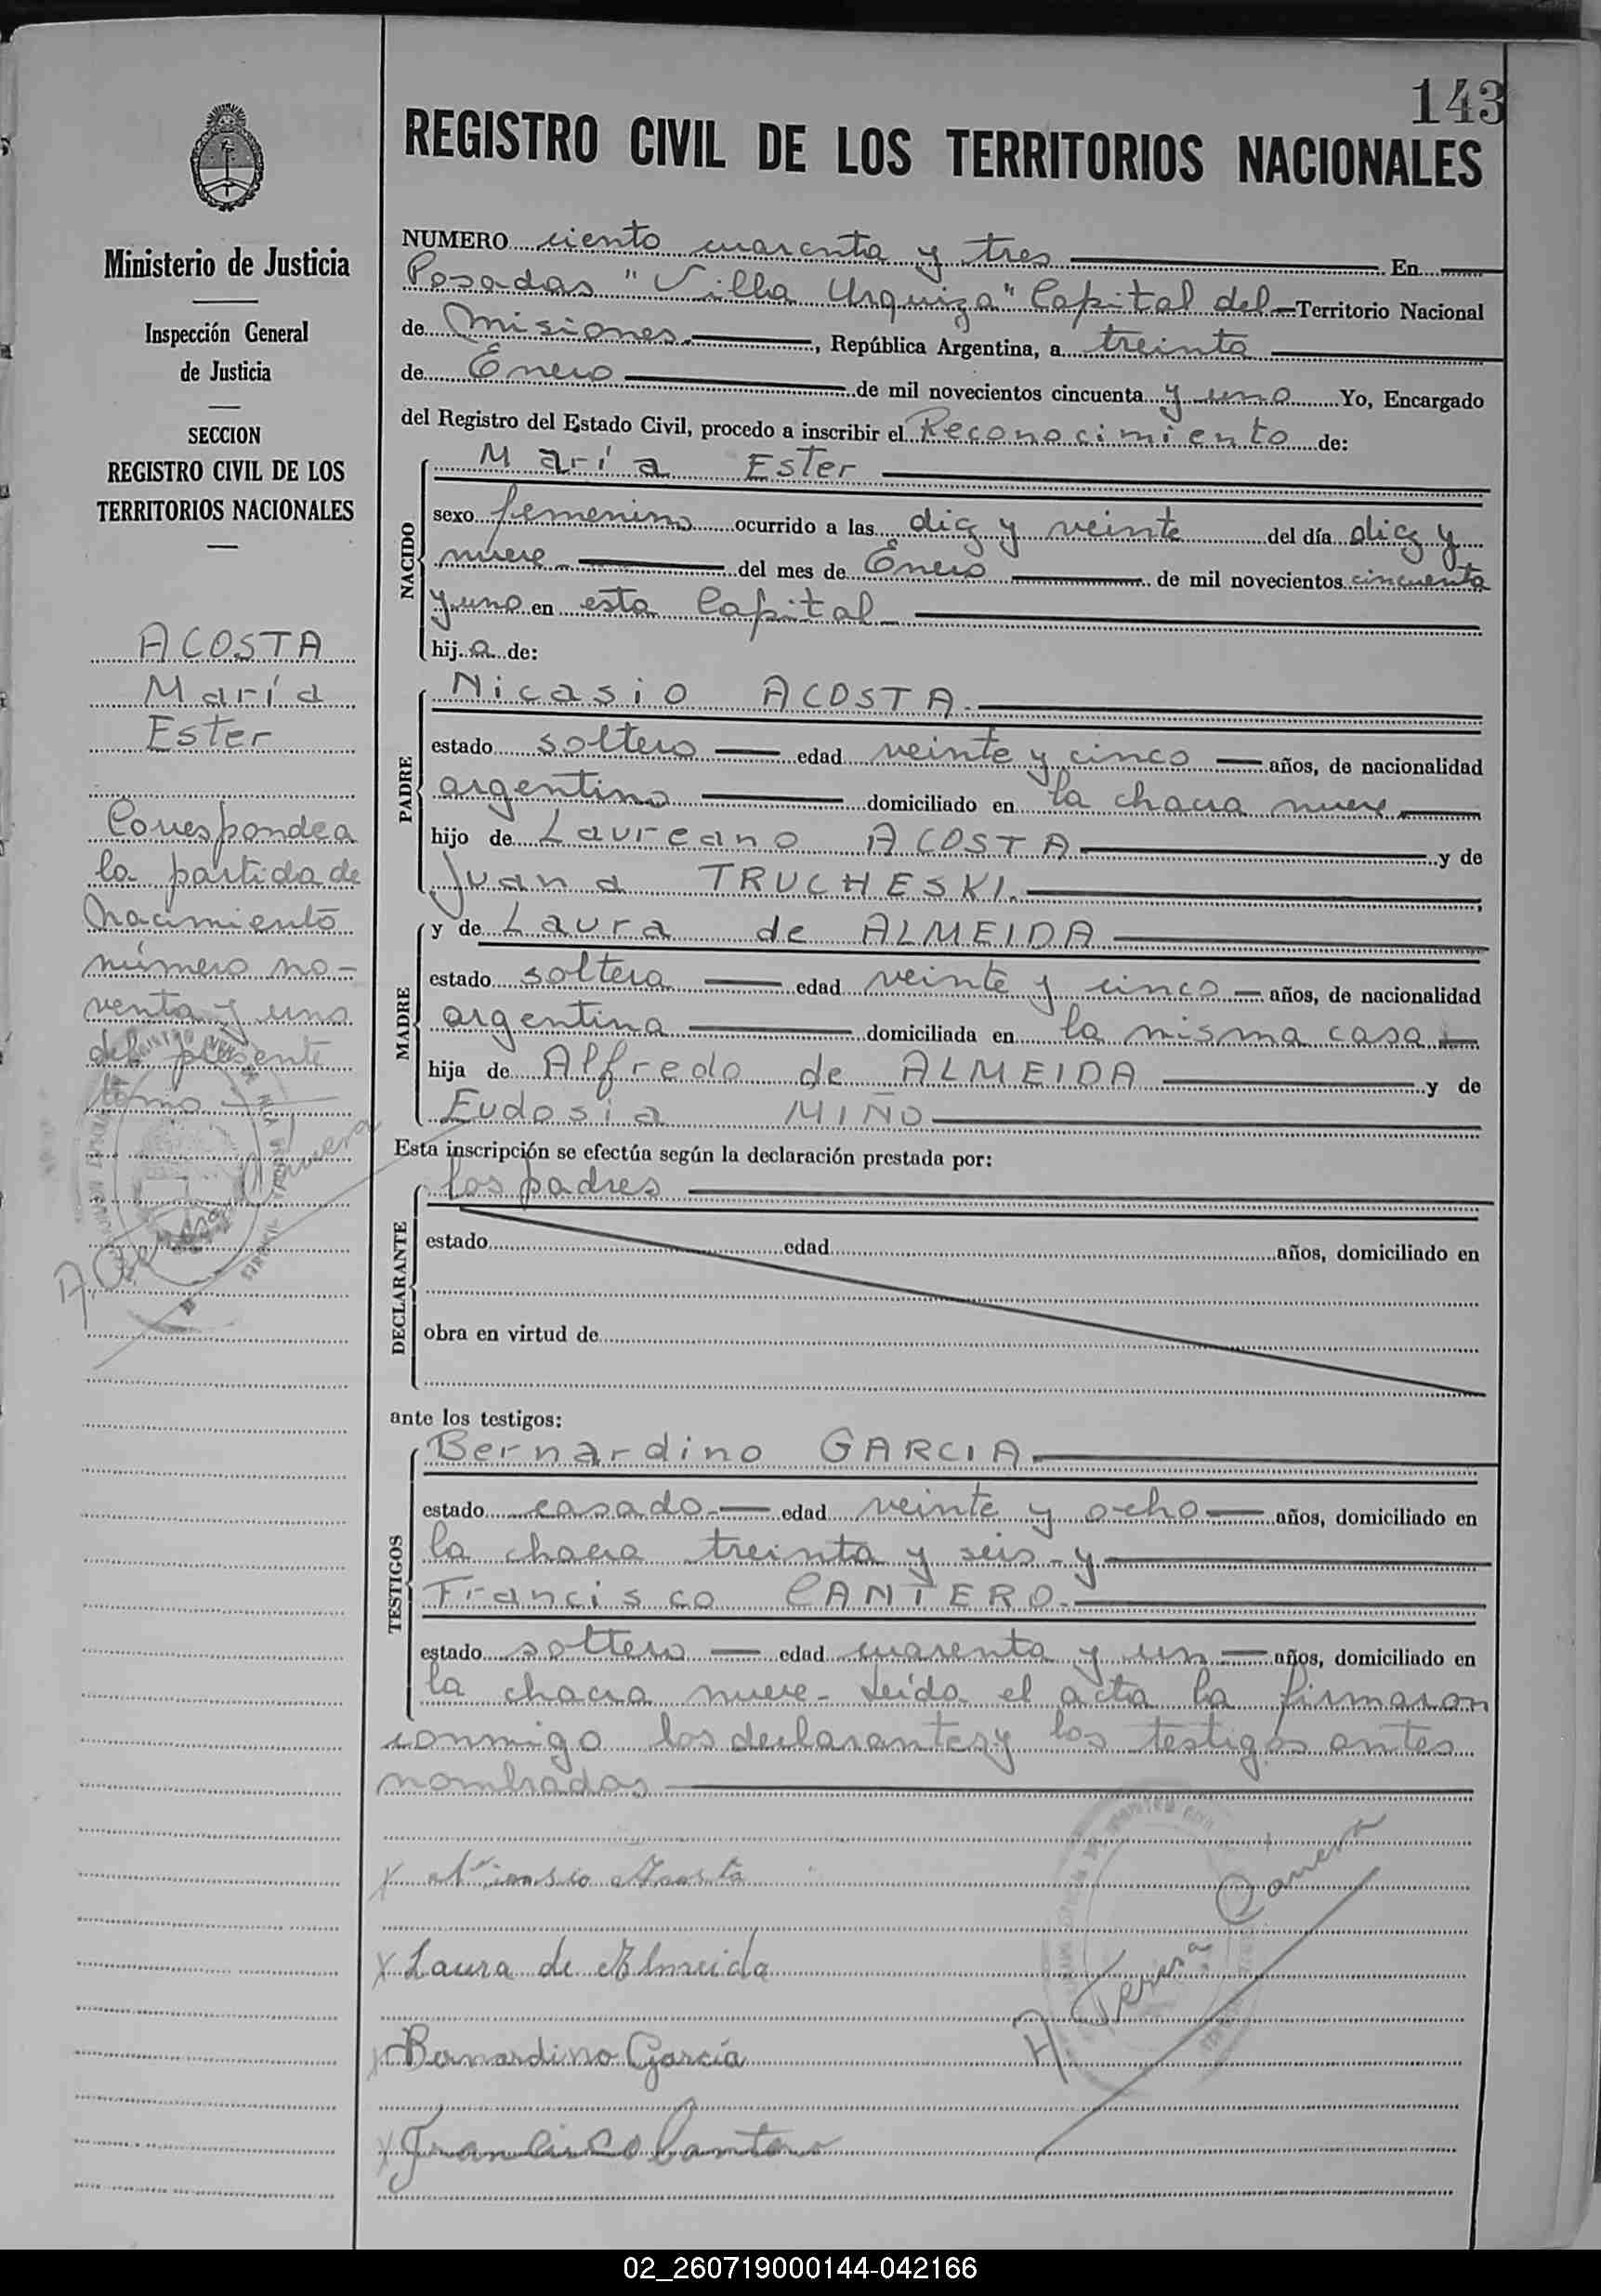 143
REGISTRO CIVIL DE LOS TERRITORIOS NACIONALES
Ministerio de Justicia
Inspección General
de Justicia
SECCION
REGISTRO CIVIL DE LOS
TERRITORIOS NACIONALES
ACOSTA
María
Ester
Corresponde a
la partida de
Nacimiento
número no-
venta y uno
del presente
tomo
NUMERO ciento cuarenta y tres En
Posadas "Villa Urquiza" Capital del Territorio Nacional
de Misiones, República Argentina, a treinta
de Enero de mil novecientos cincuenta y uno Yo, Encargado
del Registro del Estado Civil, procedo a inscribir el Reconocimiento de:
María Ester
NACIDO
sexo femenino ocurrido a las diez y veinte del día diez y
nueve del mes de Enero de mil novecientos cincuenta
y uno en esta Capital
hija de:
PADRE
Nicasio ACOSTA
estado soltero edad veinte y cinco años, de nacionalidad
argentino domiciliado en la chacra nueve
hijo de Laureano ACOSTA y de
Juana TRUCHESKI
MADRE
y de Laura de ALMEIDA
estado soltera edad veinte y cinco años, de nacionalidad
argentina domiciliada en la misma casa
hija de Alfredo de ALMEIDA y de
Eudosia MIÑO
Esta inscripción se efectúa según la declaración prestada por:
los padres
DECLARANTE
estado edad años, domiciliado en
obra en virtud de
ante los testigos:
TESTIGOS
Bernardino GARCIA
estado casado edad veinte y ocho años, domiciliado en
la chacra treinta y seis y
Francisco CANTERO
estado soltero edad cuarenta y un años, domiciliado en
la chacra nueve- Leída el acta la firmaron
conmigo los declarantes y los testigos antes
nombrados
Nicasio Acosta
Laura de Almeida
Bernardino García
Francisco Cantero
02_260719000144-042166